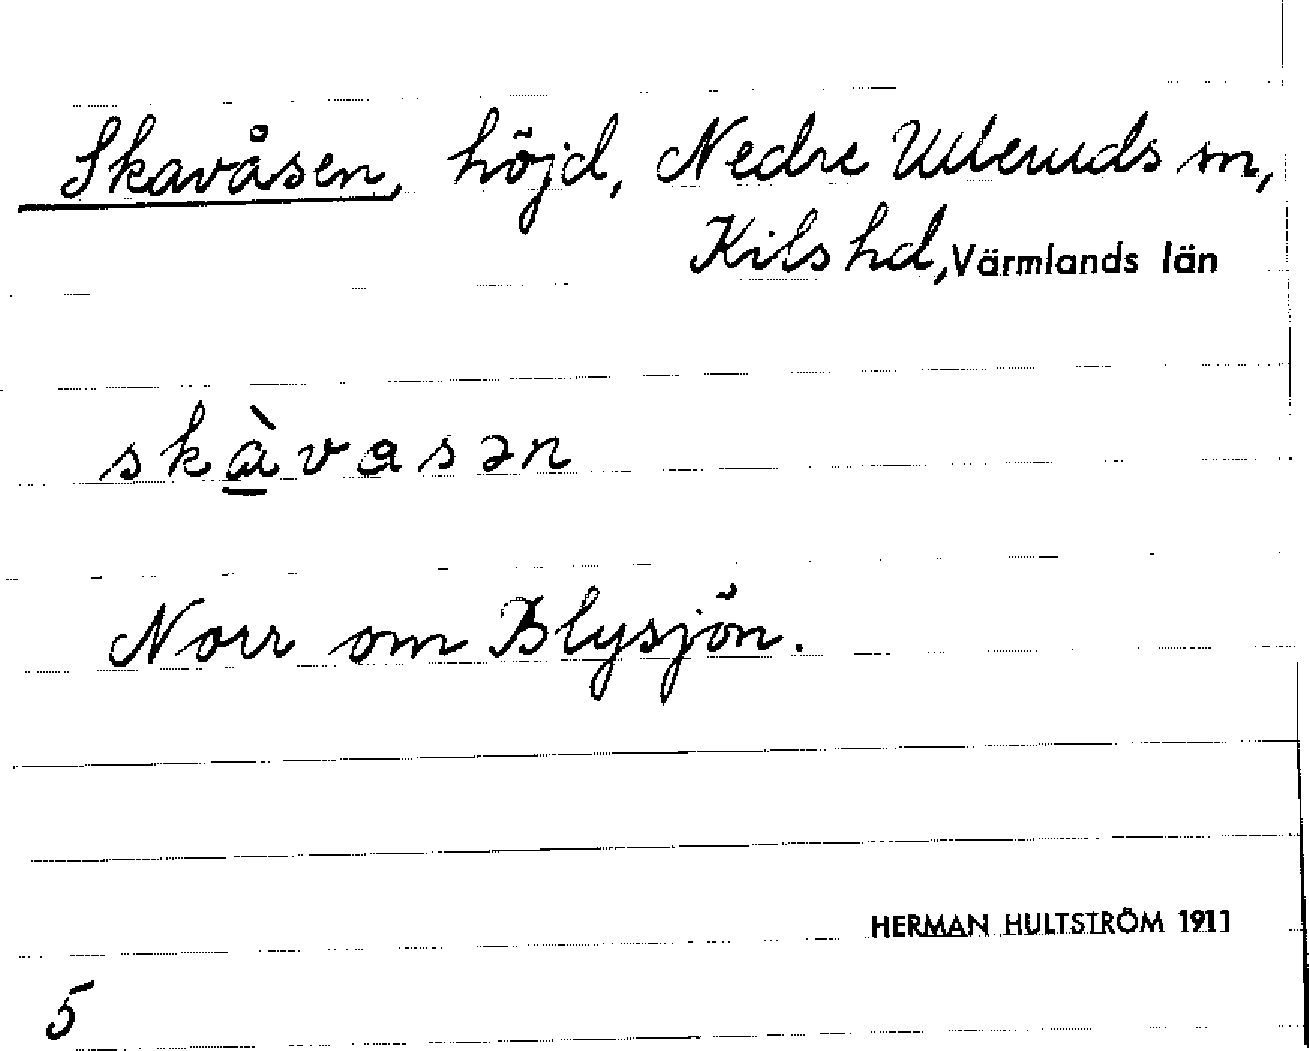 Skavåsen, höjd, Nedre Ulleruds sn,
Kils hd, Värmlands län
skàvasən
Norr om Blysjön.
HERMAN HULTSTRÖM 1911
5